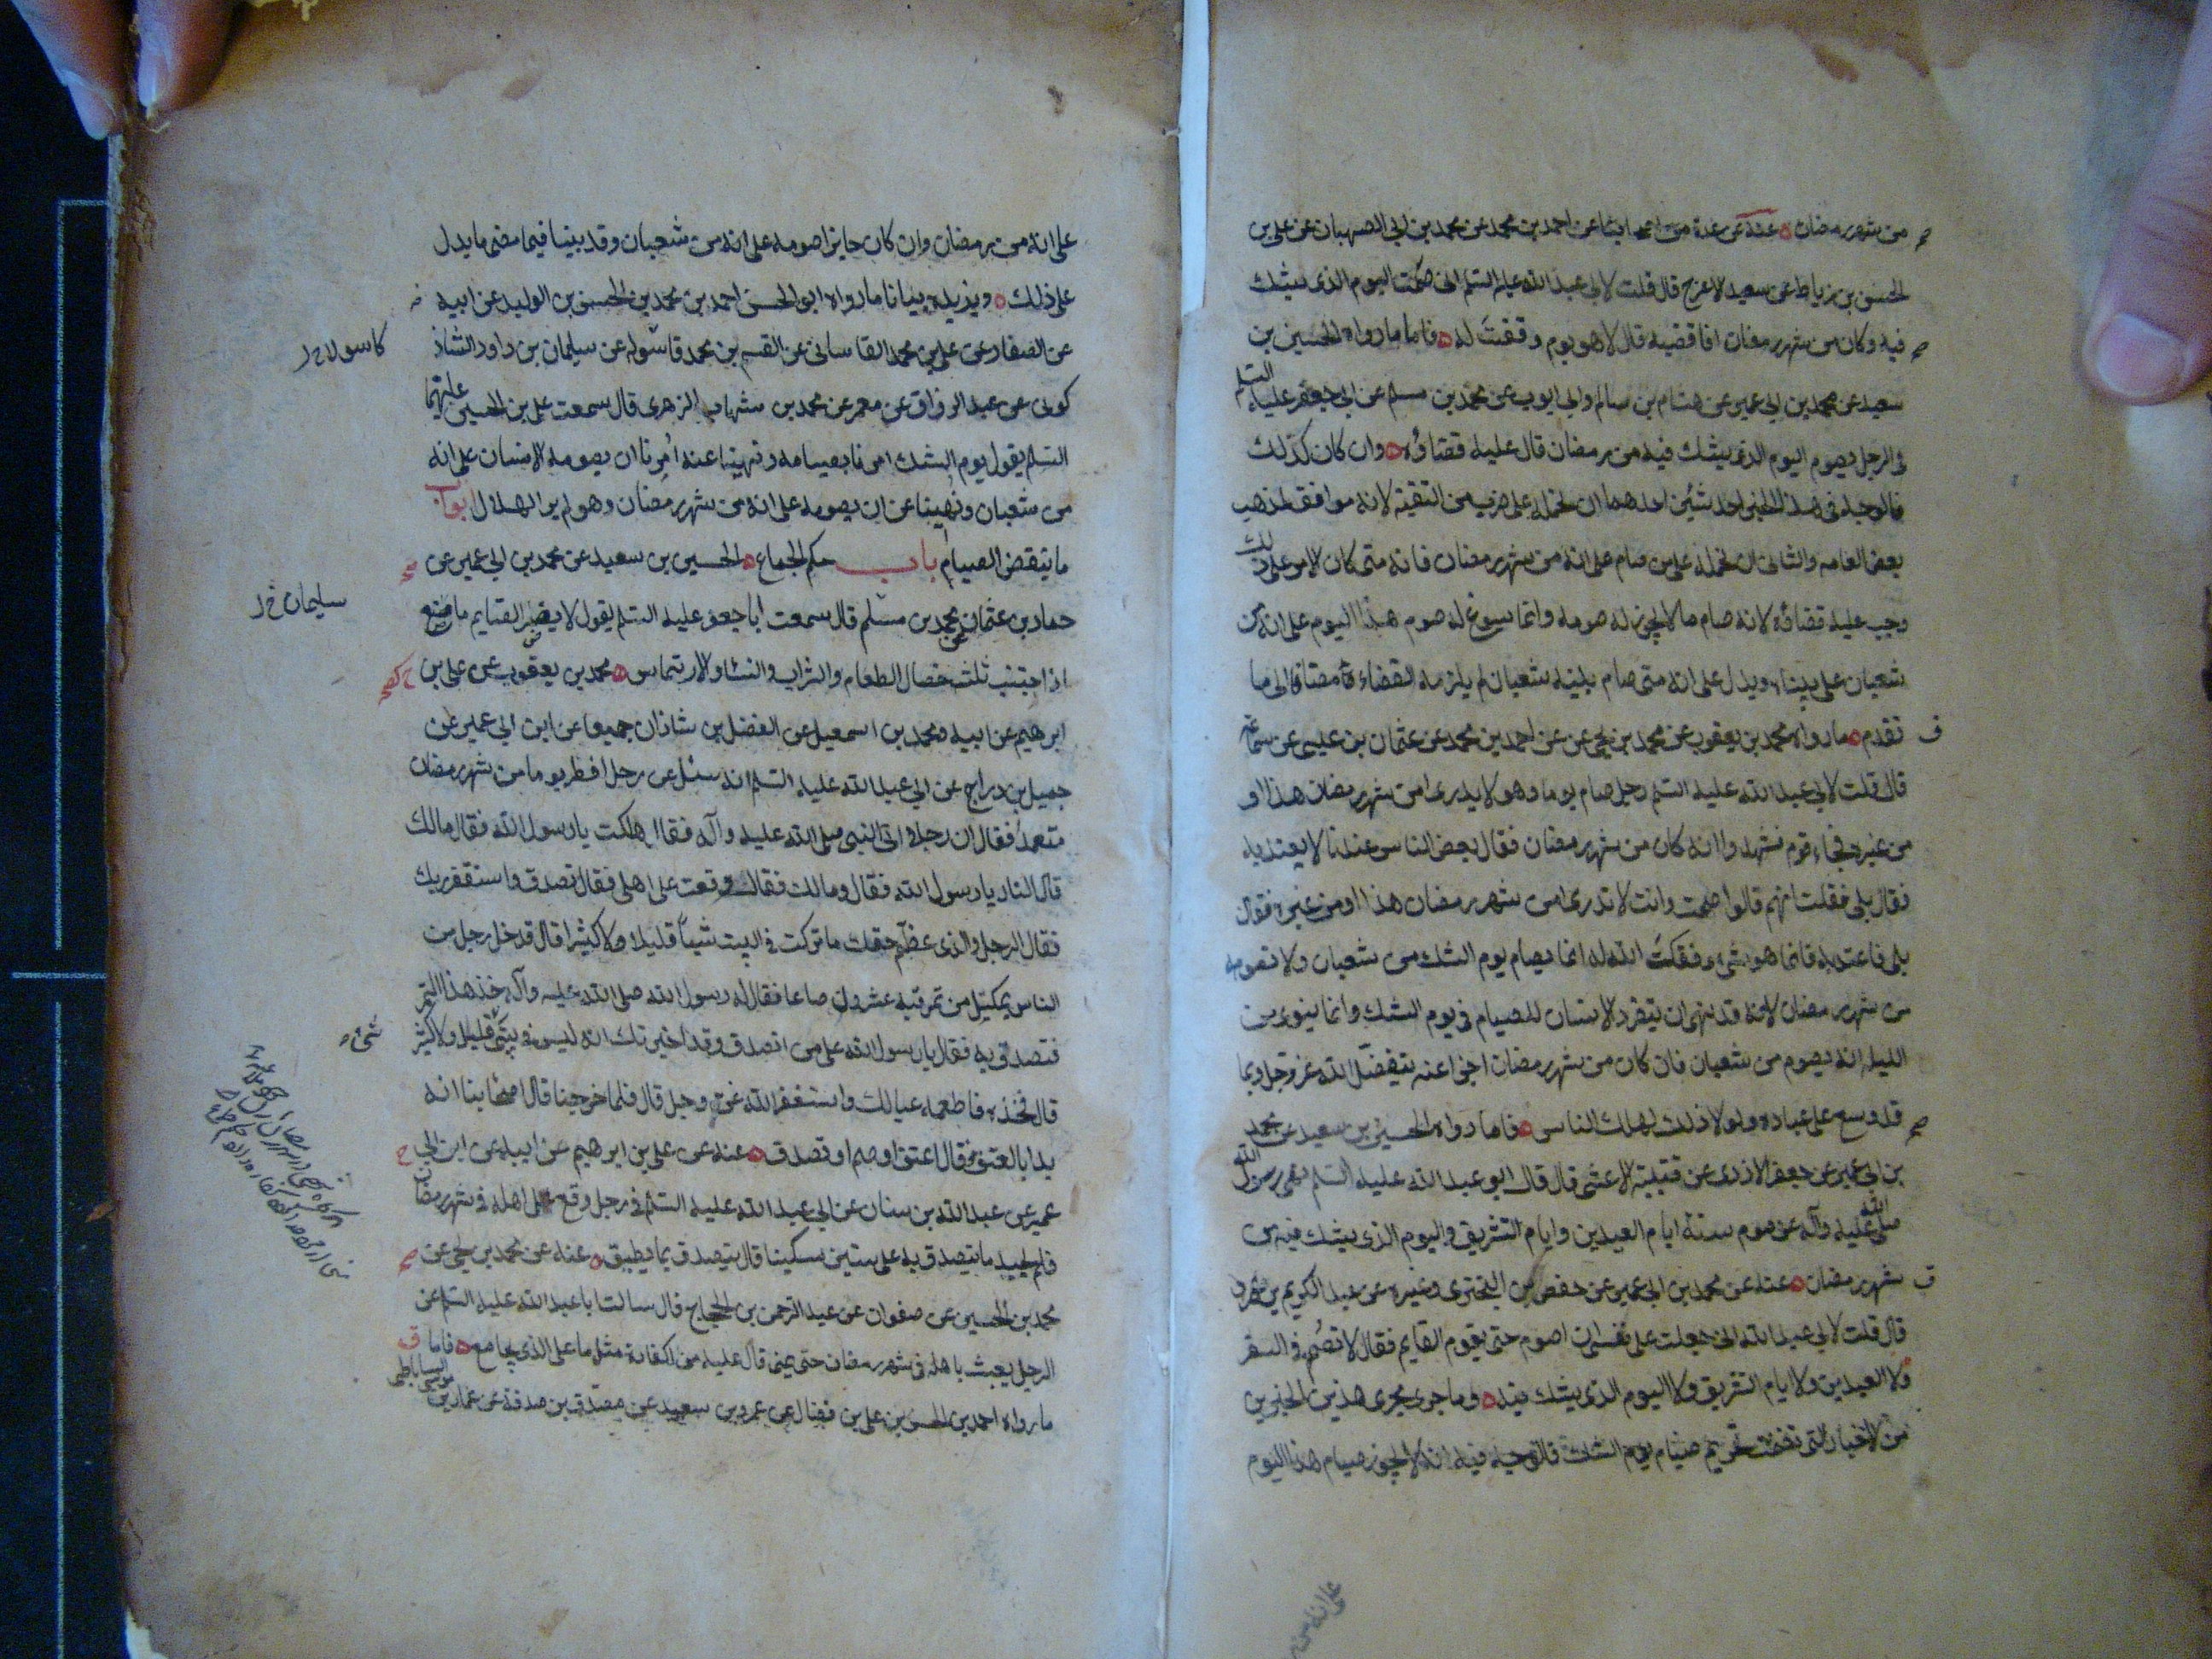 من شهر رمضان عنه عن عدة من اصحابنا عن احمد بن محمد عن محمد بن ابى الصهبان عن على بن
الحسن بن رباط عن سعيد الاعرج قال قلت لابى عبد الله عليه السلم انى صمت اليوم الذى يشك
فيه وكان من شهر رمضان افاقضيه قال لا هو يوم وفقت له فاما ما رواه الحسين بن
سعيد عن محمد بن ابى عمير عن هشام بن سالم وابى ايوب عن محمد بن مسلم عن ابى جعفر عليه السلم
فى الرجل يصوم اليوم الذى يشك فيه من رمضان قال عليه قضاؤه وان كان كذلك
فالوجه فى هذا الخبر احد شيئين احدهما ان نحمله على ضرب من التقية لانه موافق لمذهب
بعض العامه والثانى ان نحمله على من صام على انه من شهر رمضان فانه متى كان الامر على ذلك
وجب عليه قضاؤه لانه صام ما لا يجوز له صومه وانما سوغ له صوم هذا اليوم على انه من
شعبان على بيناه ويدل على انه متى صام بنية شعبان لم يلزمه القضاء مضافا الى ما
تقدم ما رواه محمد بن يعقوب عن محمد بن يحيى عن احمد بن محمد عن عثمان بن عيسى عن سماعة
قال قلت لابى عبد الله عليه السلم رجل صام يوما وهو لا يدرى امن شهر رمضان هذا او
من غيره فجاء قوم فشهدوا انه كان من شهر رمضان فقال بعض الناس عندنا لا يعتد به
فقال بلى فقلت انهم قالوا صمت وانت لا تدرى امن شهر رمضان هذا او من غيره فقال
بلى فاعتد به فانما هو شىء وفقك الله له انما يصام يوم الشك من شعبان ولا تصومه
من شهر رمضان لانه قد نهى ان ينفرد الانسان للصيام فى يوم الشك وانما ينوى من
الليلة انه يصوم من شعبان فان كان من شهر رمضان اجزا عنه بتفضل الله عز وجل وبما
قد وسع على عباده ولولا ذلك لهلك الناس فاما ما رواه الحسين بن سعيد عن محمد
بن ابى عمير عن جعفر الازدى عن قتيبة الاعشى قال قال ابو عبد الله عليه السلم نهى رسول الله
صلى الله عليه وآله عن صوم ستة ايام العيدين وايام التشريق واليوم الذى يشك فيه من
شهر رمضان عنه عن محمد بن ابى عمير عن حفص بن البخترى وغيره عن عبد الكريم بن عمرو
قال قلت لابى عبد الله انى جعلت على نفسى ان اصوم حتى يقوم القايم فقال لا تصم فى السفر
ولا العيدين ولا ايام التشريق ولا اليوم الذى يشك فيه وما جرى مجرى هذين الخبرين
من الاخبار التى تضمنت تحريم صيام يوم الشك فالوجه فيه انه لا يجوز صيام هذا اليوم
على انه من
على انه من رمضان وان كان جايزا صومه على انه من شعبان وقد بينا فيما مضى ما يدل
على ذلك ويزيده بيانا ما رواه ابو الحسن احمد بن محمد بن الحسن بن الوليد عن ابيه
عن الصفار عن على بن محمد القاسانى عن القسم بن محمد قاسولم عن سليمان بن داود الشاذ
كونى عن عبد الرزاق عن معمر عن محمد بن شهاب الزهرى قال سمعت على بن الحسين عليهما
السلم يقول يوم الشك امرنا بصيامه ونهينا عنه امرنا ان يصومه الانسان على انه
من شعبان ونهينا عن ان يصومه على انه من شهر رمضان وهو لم ير الهلال ابواب
ما ينقض الصيام باب حكم الجماع الحسين بن سعيد عن محمد بن ابى عمير عن
حماد بن عثمان عن محمد بن مسلم قال سمعت ابا جعفر عليه السلم يقول لا يضر الصايم ما صنع
اذا اجتنب ثلث خصال الطعام والشراب والنساء والارتماس محمد بن يعقوب عن على بن
ابرهيم عن ابيه ومحمد بن اسمعيل عن الفضل بن شاذان جميعا عن ابن ابى عمير عن
جميل بن دراج عن ابى عبد الله عليه السلم انه سئل عن رجل افطر يوما من شهر رمضان
متعمدا فقال ان رجلا اتى النبى صلى الله عليه وآله فقال هلكت يا رسول الله فقال مالك
قال النار يا رسول الله فقال ومالك فقال وقعت على اهلى فقال تصدق واستغفر ربك
فقال الرجل والذى عظم حقك ما تركت فى البيت شيئا قليلا ولا كثيرا قال فدخل رجل من
الناس بمكتل من تمر فيه عشرون صاعا فقال له رسول الله صلى الله عليه وآله خذ هذا التمر
فتصدق به فقال يا رسول الله على من اتصدق وقد اخبرتك انه ليس فى بيتى قليل ولا كثير
قال فخذه فاطعمه عيالك واستغفر الله عز وجل قال فلما خرجنا قال اصحابنا انه
بدا بالعتق فقال اعتق او صم او تصدق عنه عن على بن ابرهيم عن ابيه عن ابن ابى
عمير عن عبد الله بن سنان عن ابى عبد الله عليه السلم فى رجل وقع على اهله فى شهر رمضان
فلم يجد ما يتصدق به على ستين مسكينا قال يتصدق بما يطيق عنه عن محمد بن يحيى عن
محمد بن الحسين عن صفوان عن عبد الرحمن بن الحجاج قال سالت ابا عبد الله عليه السلم عن
الرجل يعبث باهله فى شهر رمضان حتى يمنى قال عليه من الكفارة مثل ما على الذى يجامع فاما
ما رواه احمد بن الحسن بن على بن فضال عن عمرو بن سعيد عن مصدق بن صدقة عن عمار بن موسى الساباطى
سليمان خ ل
شىء